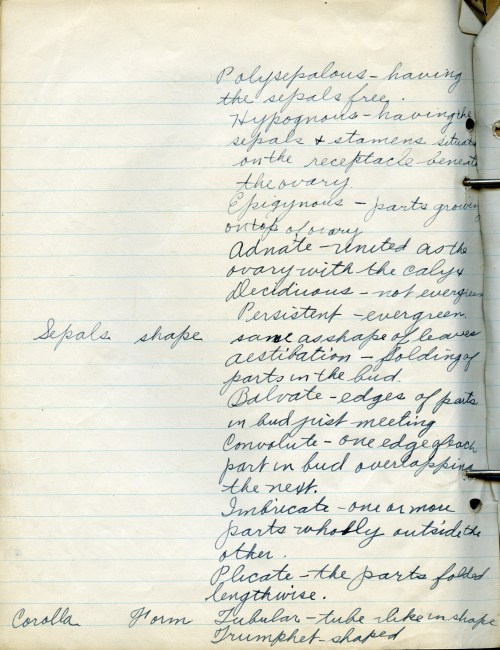 Polysepalous - having
the sepals free.
Hypognous - having the
sepals & stamens situat
on the receptacle beneat
the ovary.
Epigynous - parts growing
on top of ovary
Adnate - united as the
ovary with the calyx
Deciduous - not evergreen
Persistent - evergreen.
Sepals shape same as shape of leaves
aestibation - folding of
parts in the bud.
Balvate - edges of parts
in bud just meeting
Convolute - one edge of each
part in bud overlapping
the next.
Imbricate - one or more
parts wholly outside the
other.
Plicate - the parts folded
lengthwise.
Corolla Form Tubular - tube-like in shape
Trumphet-shaped